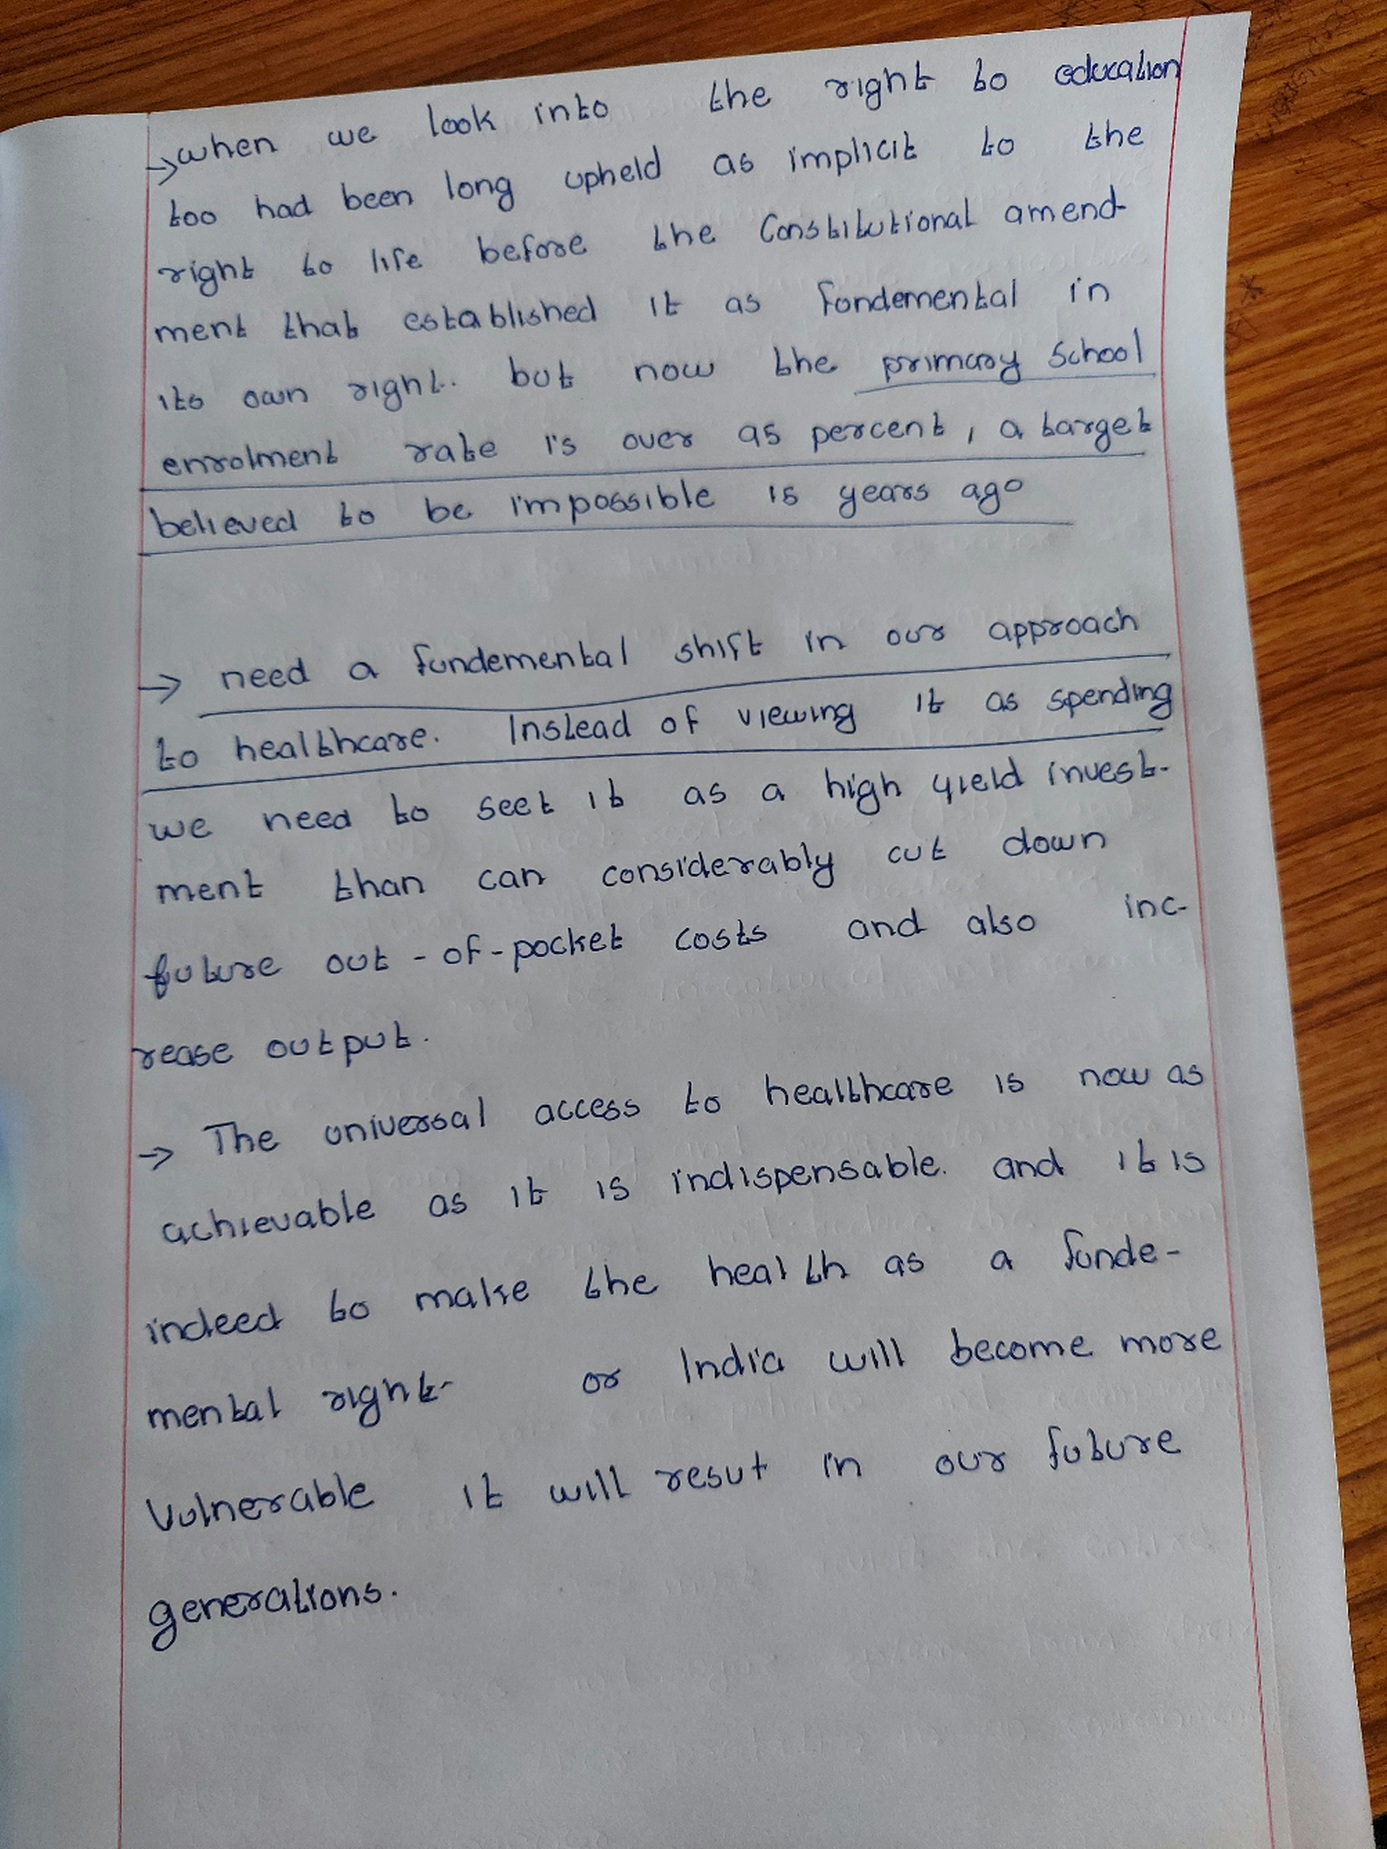 → when we look into the right to education
too had been long upheld as implicit to the
right to life before the Constitutional amend-
ment that established it as fondemental in
its own right. but now the primary school
enrolment rate is over 95 percent, a target
believed to be impossible 15 years ago
→ need a fundemental shift in our approach
to healthcare. Instead of viewing it as spending
we need to seet it as a high yield invest-
ment than can considerably cut down
future out-of-pocket costs and also inc-
rease output.
→ The universal access to healthcare is now as
achievable as it is indispensable. and it is
indeed to make the health as a funde-
mental right- or India will become more
Vulnerable it will resut in our future
generations.